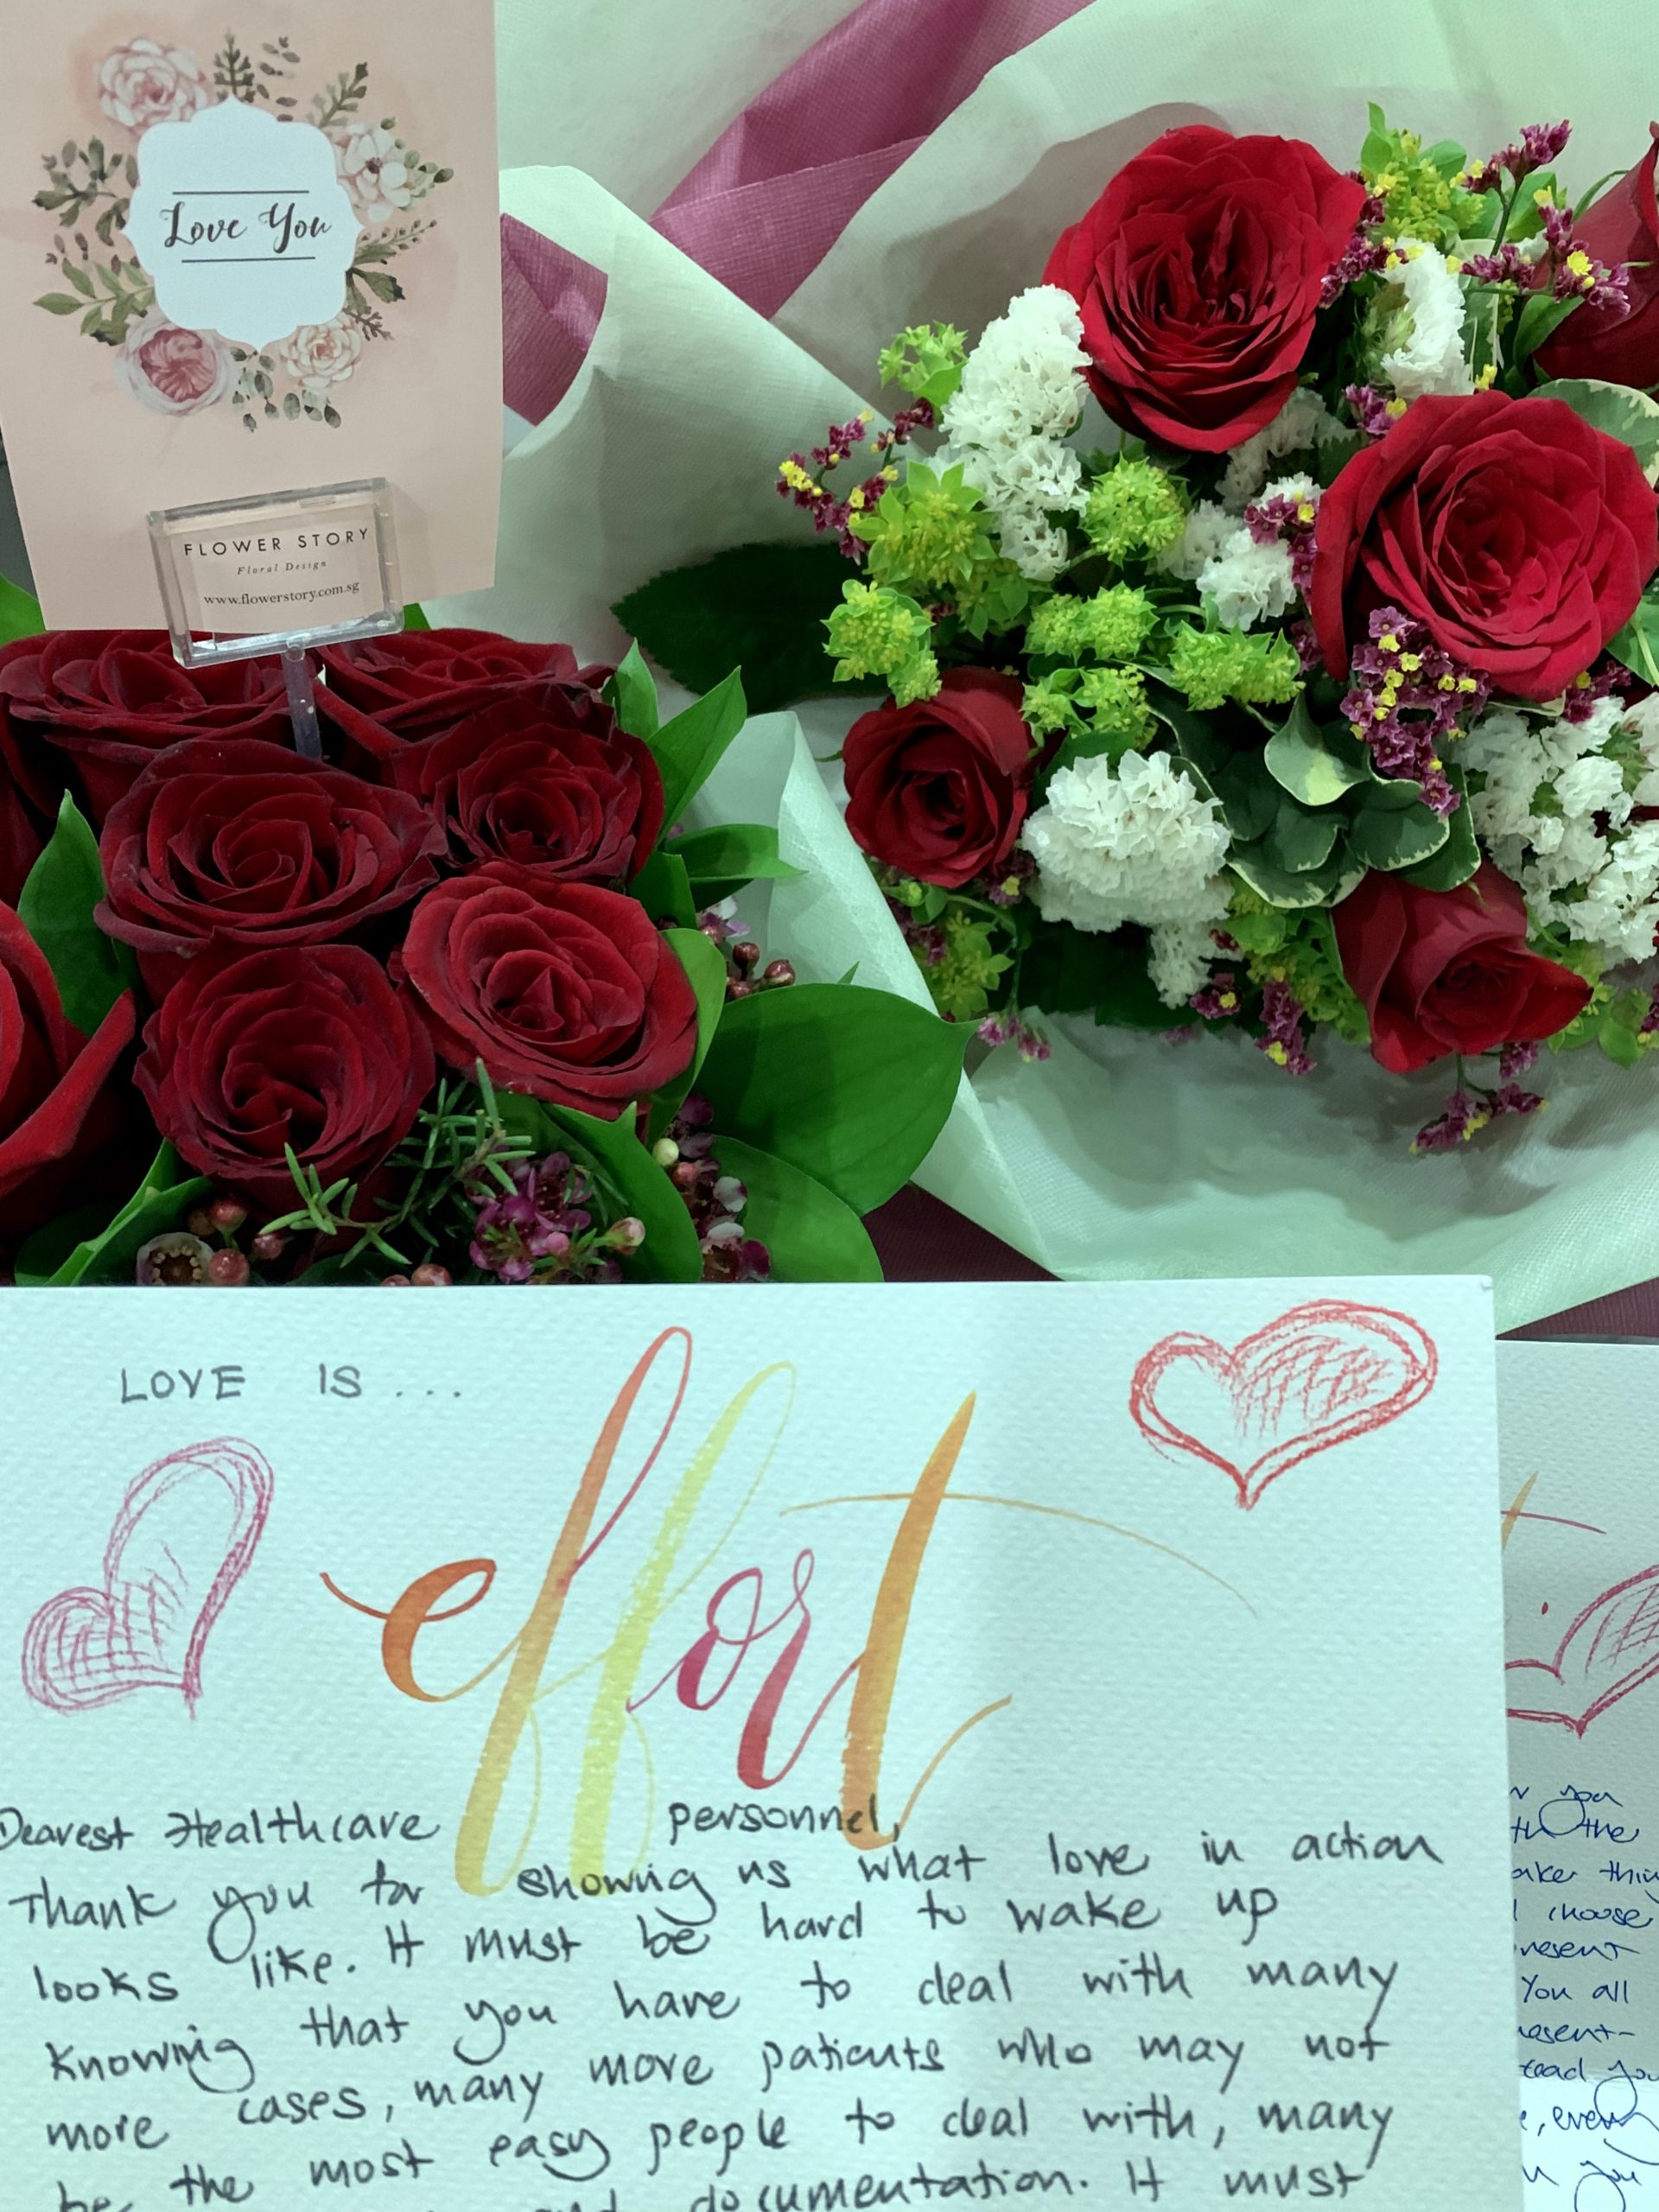 Love You
FLOWER STORY
Floral Design
www.flowerstory.com.sg
LOVE IS ...
effort
Dearest Healthcare personnel,
Thank you for showing us what love in action
looks like. It must be hard to wake up
knowing that you have to deal with many
more cases, many more patients who may not
be the most easy people to deal with, many
and documentation. It must
you
the
choose
You all